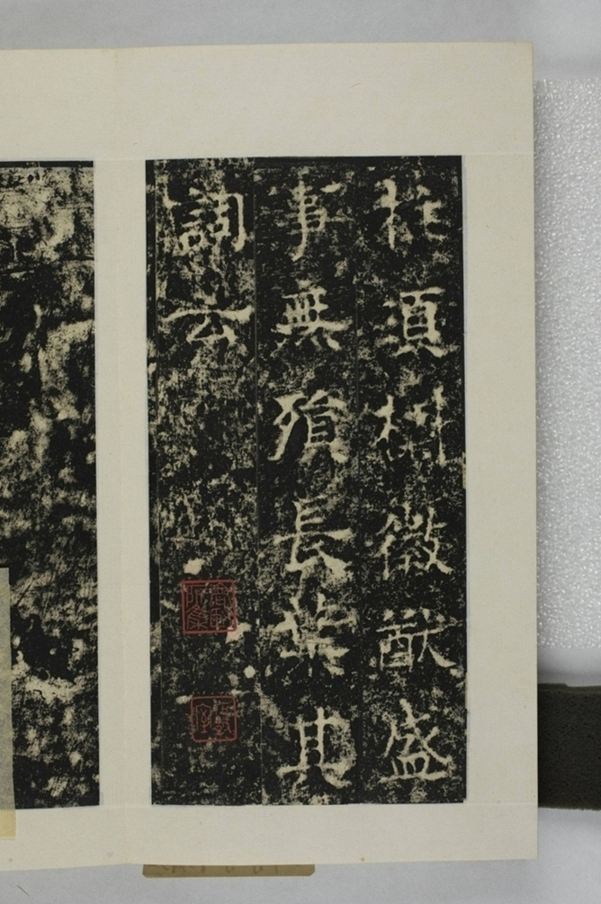 於須刊徽猷盛
事無殞長葉其
詞云